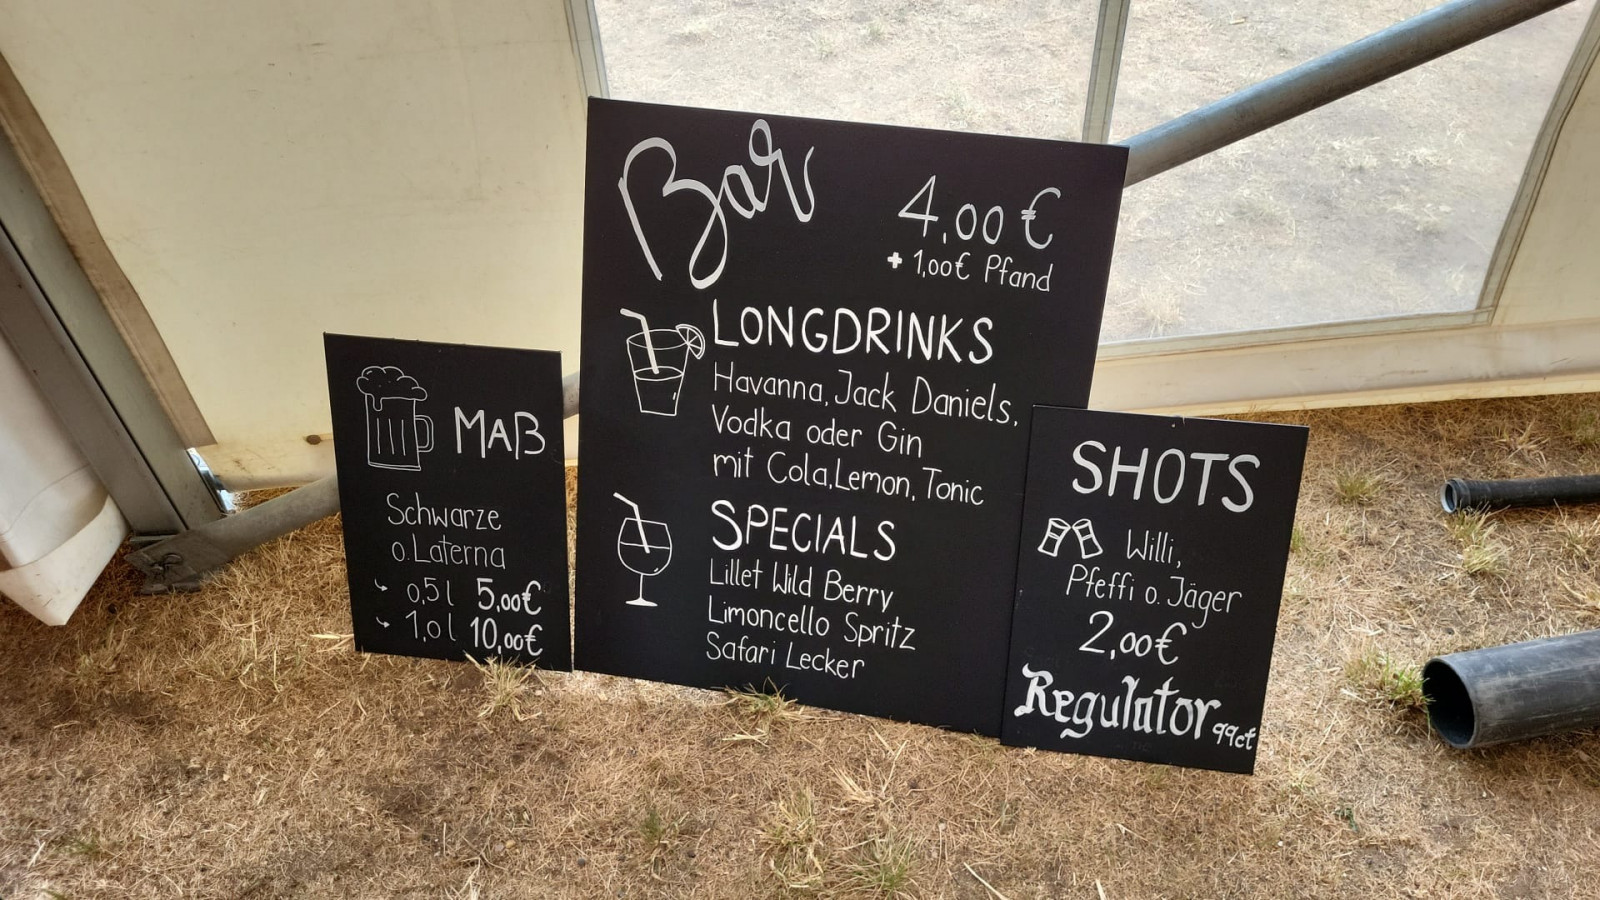 MAß
Schwarze
o. Laterna
0,5 l 5,00€
1,0 l 10,00€
Bar
4,00 €
+ 1,00€ Pfand
LONGDRINKS
Havanna, Jack Daniels,
Vodka oder Gin
mit Cola, Lemon, Tonic
SPECIALS
Lillet Wild Berry
Limoncello Spritz
Safari Lecker
SHOTS
Willi,
Pfeffi o. Jäger
2,00€
Regulator 99ct